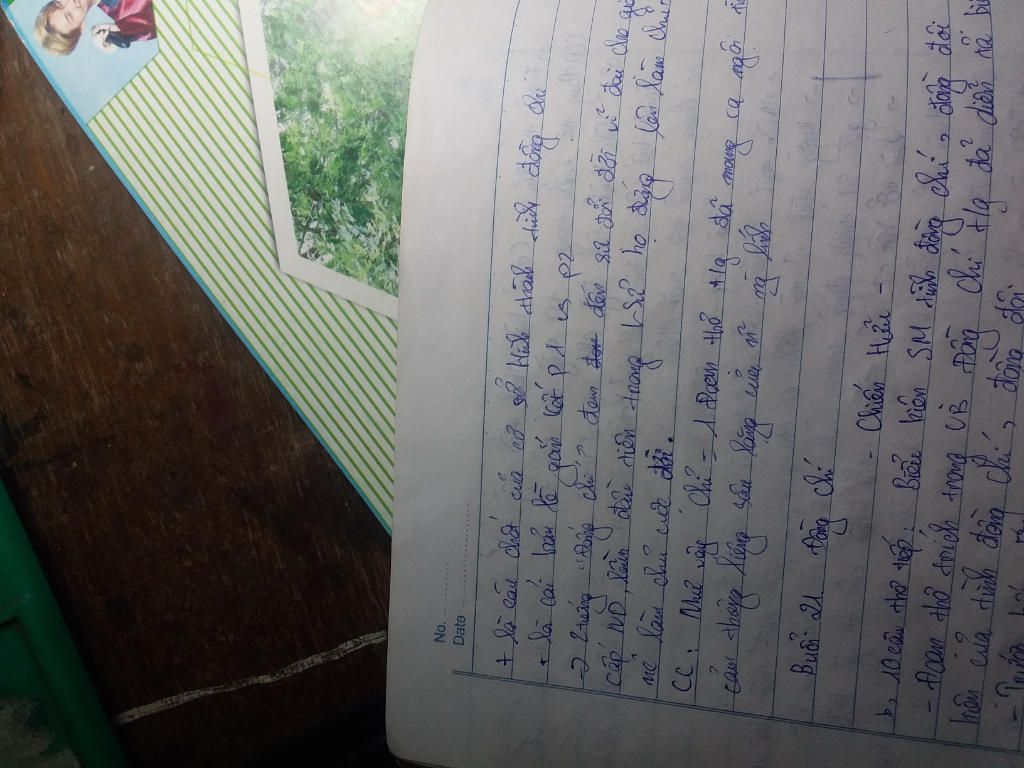 No.
Date
+ là câu chốt của nó sẽ Hình thành tình đồng chí
+ là cái bản lề gắn kết P1 vs P2
→ 2 tiếng "đồng chí" đem đến sự đổi đời vĩ đại cho
cấp ND, lần đầu tiên trong LSử họ đứng lên làm chủ
mệ làm chủ cuộc đời.
CC: Như vậy chỉ = 1 đoạn thơ Hg đã mang ca ngợi
cảm thiêng liêng sâu lắng của n~ ng lính
Buổi 21. Đồng chí
- Chiến Hữu -
b, 10 câu thơ tiếp: Biểu hiện SM tình đồng chí, đồng đội
- Đoạn thơ trích trong VB Đồng Chí Hg đã diễn tả
hiện của tình đồng chí, đồng đội